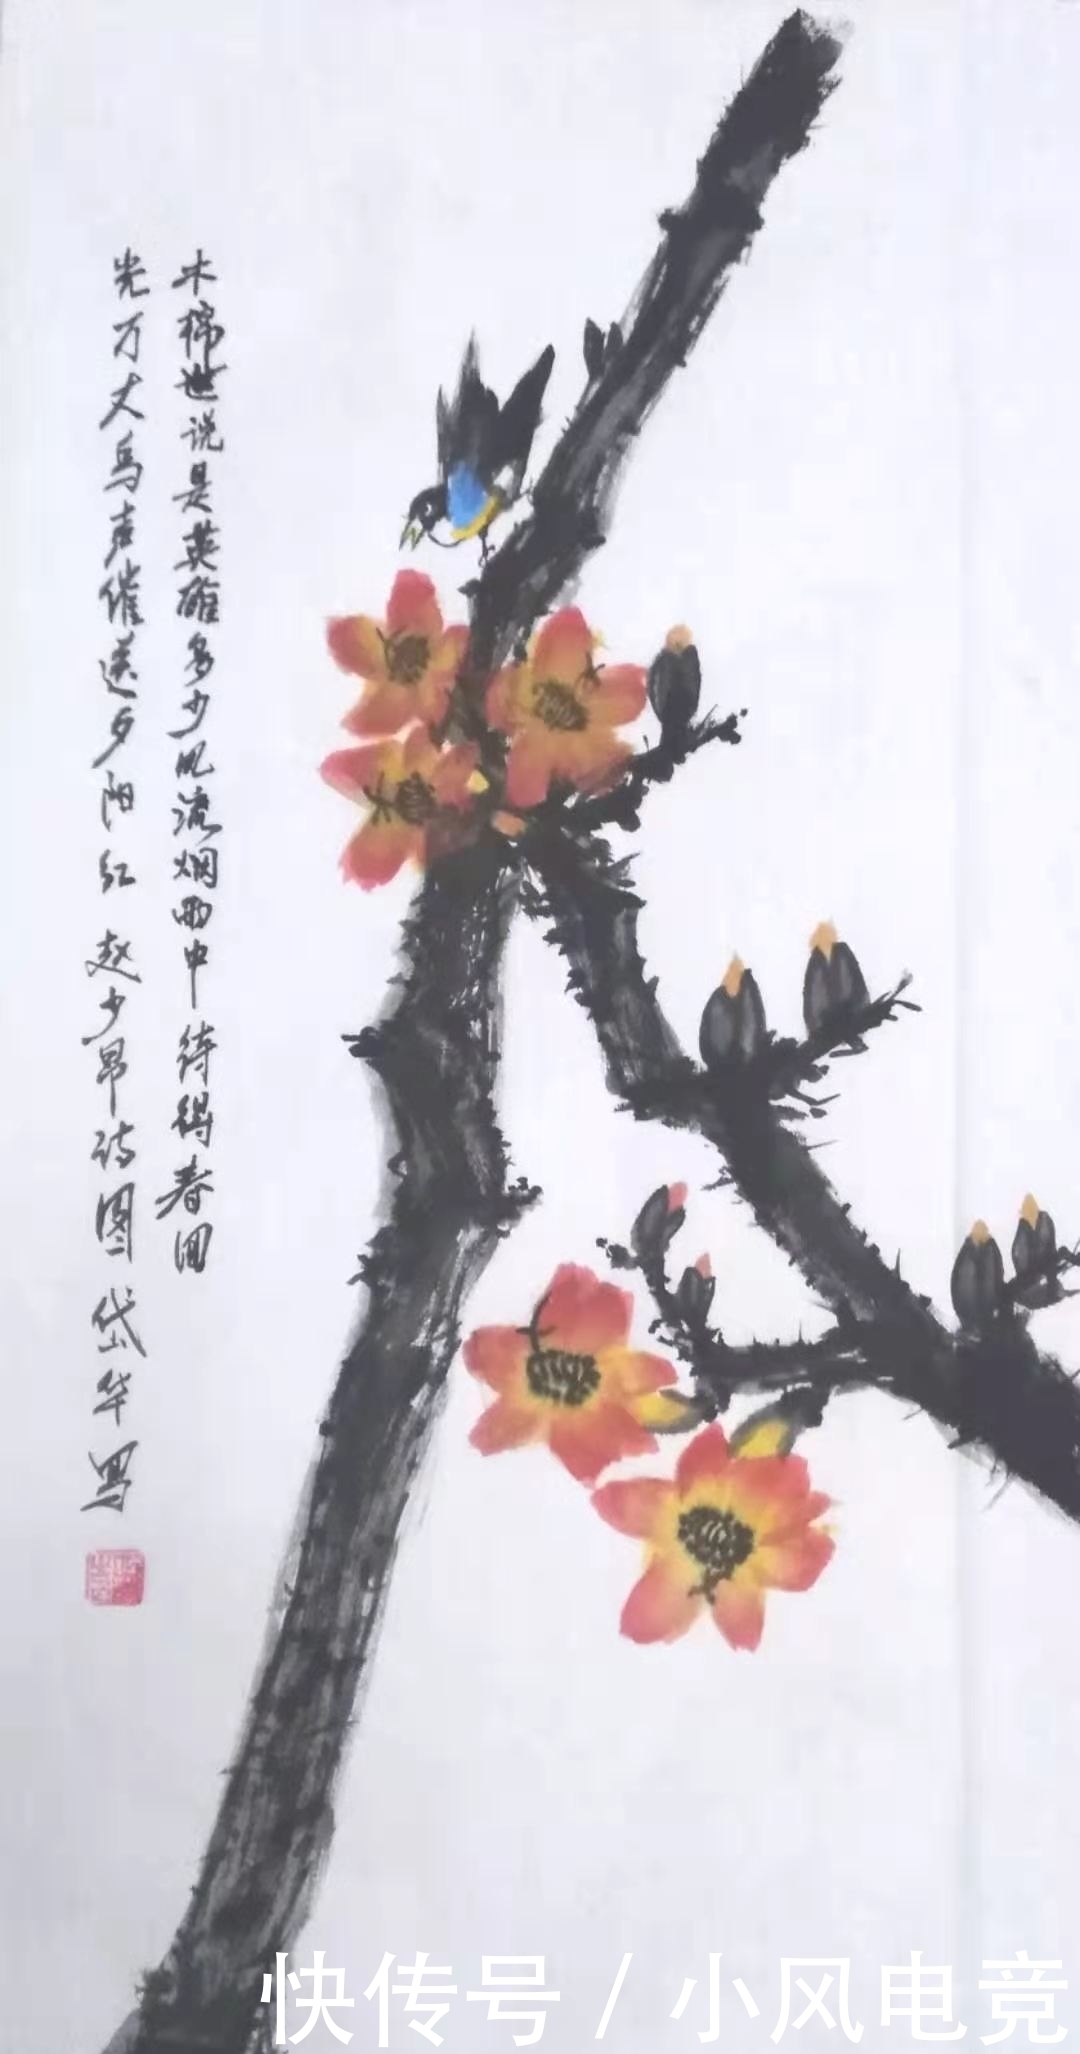 木棉世说是英雄多少风流烟雨中待得春回
光万丈鸟声催送夕阳红 赵少昂诗图 岱华写
快传号 / 小风电竞